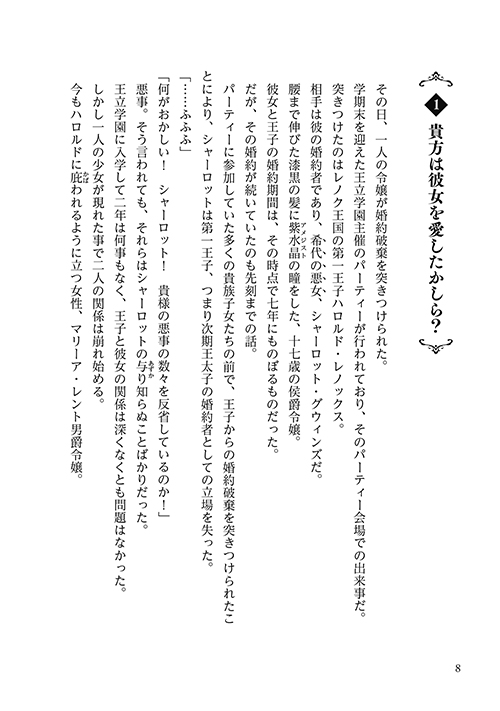 1 貴方は彼女を愛したかしら？
その日、一人の令嬢が婚約破棄を突きつけられた。
学期末を迎えた王立学園主催のパーティーが行われており、そのパーティー会場での出来事だ。
突きつけたのはレノク王国の第一王子ハロルド・レノックス。
相手は彼の婚約者であり、希代の悪女、シャーロット・グウィンズだ。
腰まで伸びた漆黒の髪に紫水晶アメジストの瞳をした、十七歳の侯爵令嬢。
彼女と王子の婚約期間は、その時点で七年にものぼるものだった。
だが、その婚約が続いていたのも先刻までの話。
パーティーに参加していた多くの貴族子女たちの前で、王子からの婚約破棄を突きつけられたこ
とにより、シャーロットは第一王子、つまり次期王太子の婚約者としての立場を失った。
「……ふふふ」
「何がおかしい！　シャーロット！　貴様の悪事の数々を反省しているのか！」
悪事。そう言われても、それらはシャーロットの与あずかり知らぬことばかりだった。
王立学園に入学して二年は何事もなく、王子と彼女の関係は深くなくとも問題はなかった。
しかし一人の少女が現れた事で二人の関係は崩れ始める。
今もハロルドに庇かばわれるように立つ女性、マリーア・レント男爵令嬢。
8